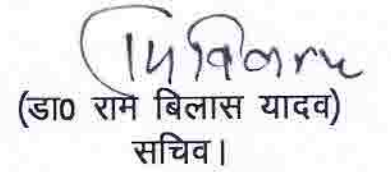 (डा0 राम बिलास यादव)
सचिव।